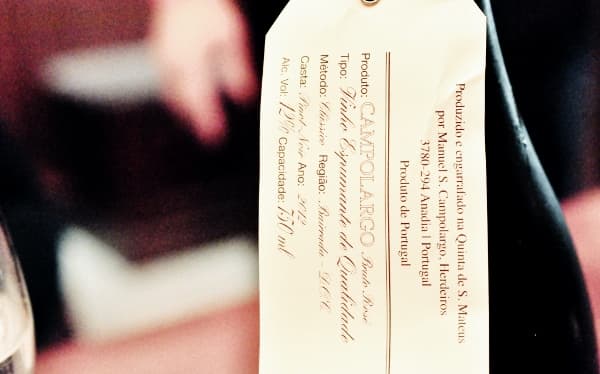 Produzido e engarrafado na Quinta de S. Mateus
por Manuel S. Campolargo, Herdeiros
3780-294 Anadia | Portugal
Produto de Portugal
Produto: CAMPOLARGO Bruto Rosé
Tipo: Vinho Espumante de Qualidade
Método: Clássico Região: Bairrada - D.O.C.
Casta: Pinot Noir Ano: 2012
Alc. Vol: 12% Capacidade: 750 ml